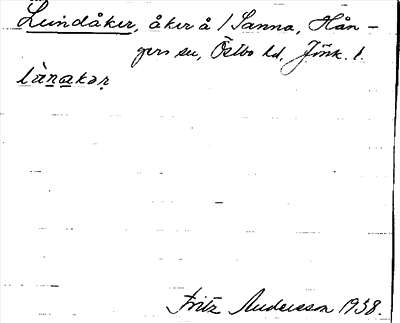 Lundåker, åker å 1 Sanna, Hån-
gers sn, Östbo hd, Jönk. l.
lànakər
Fritz Andersson 1938.